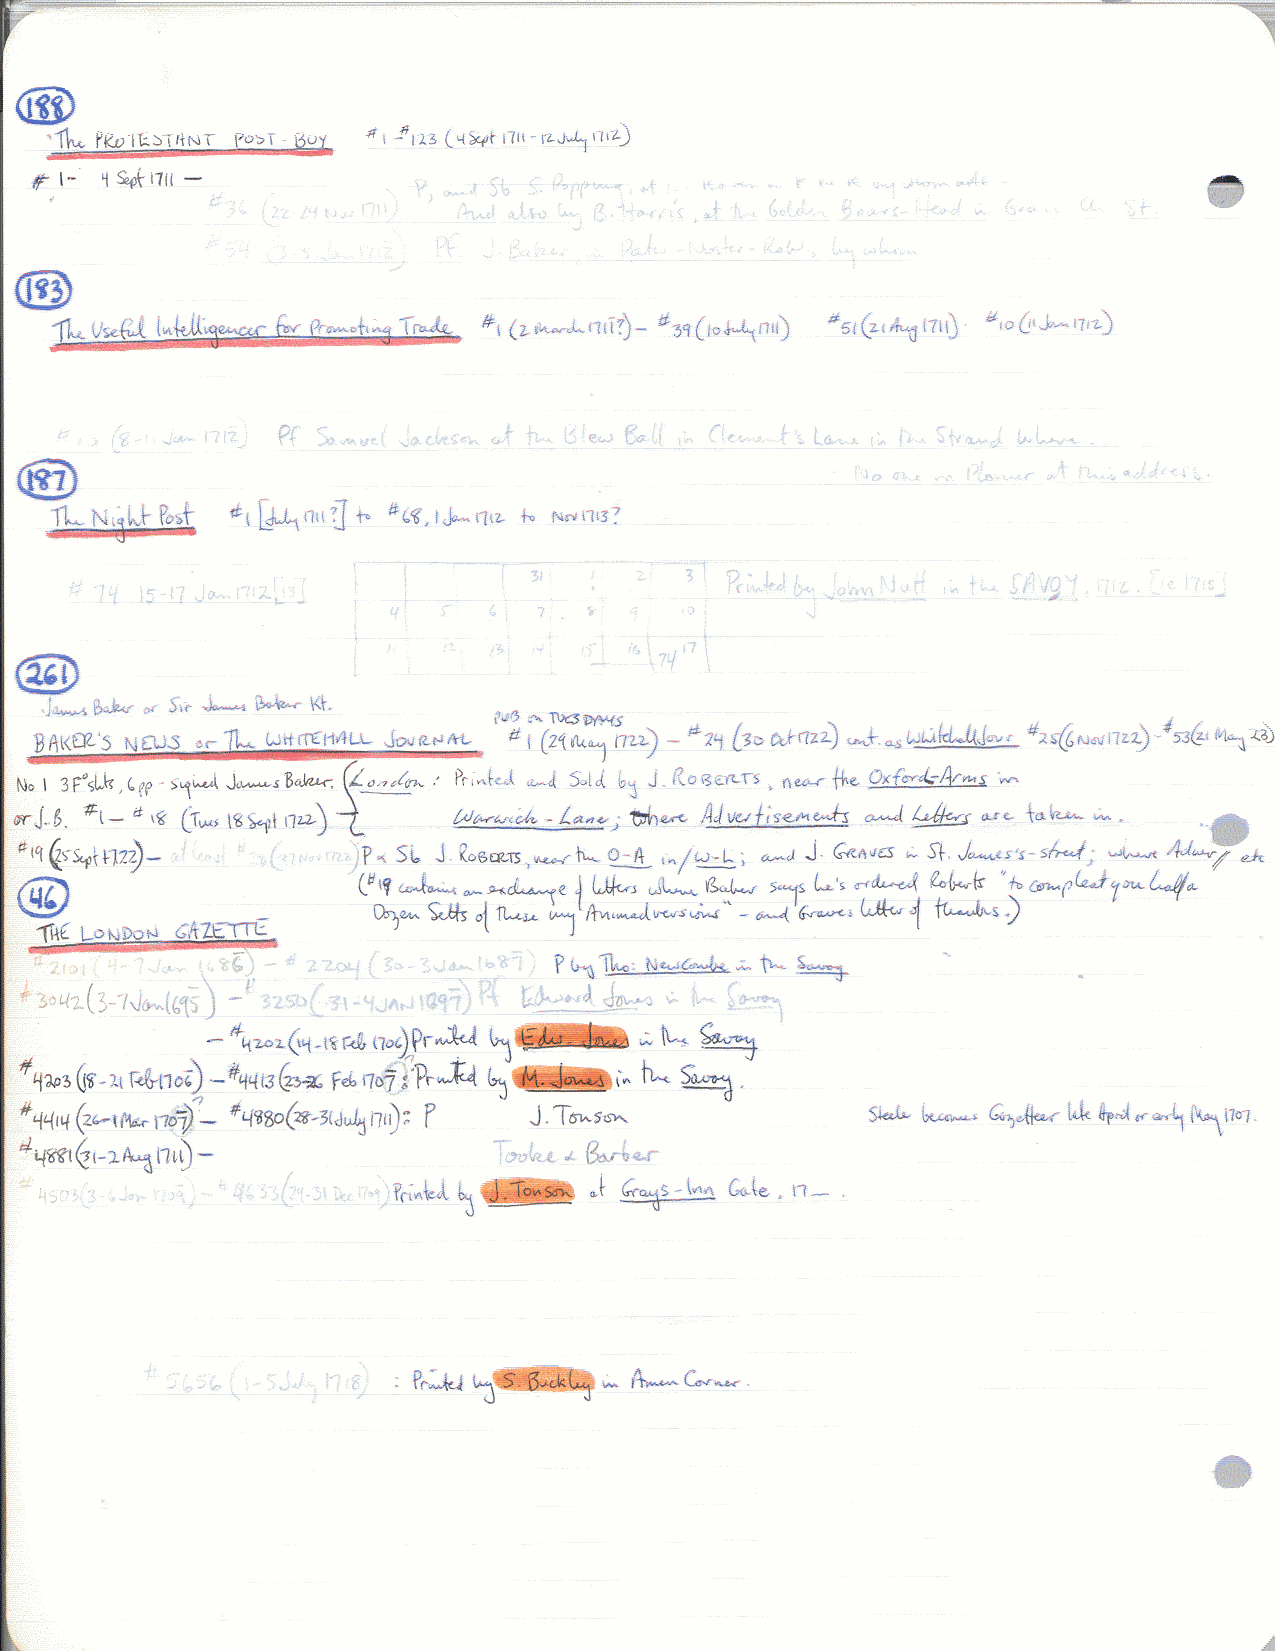 188
The PROTESTANT POST-BOY #1-#123 (4 Sept 1711-12 July 1712)
#1- 4 Sept 1711 —
P, and Sb S. Popping, at
#36 (22-24 Nov 1711) And also by B. Harris, at the Golden Boars-Head in Ch. St.
#54 (3-5 Jan 1712) Pf. J. Baker, in Pater-Noster-Row, by whom
183
The Useful Intelligencer for Promoting Trade #1 (2 March 1711?) — #39 (10 July 1711) #51 (21 Aug 1711). #10 (11 Jan 1712)
(8-11 Jan 1712) Pf Samuel Jackson at the Blew Ball in Clement's Lane in the Strand where.
No one in Plomer at this address.
187
The Night Post #1 [July 1711?] to #68, 1 Jan 1712 to Nov 1713?
#74 15-17 Jan 1712[13] Printed by John Nutt in the SAVOY. 1712. [ie 1713]
31 1 2 3
4 5 6 7 8 9 10
11 12 13 14 15 16 17
74
261
James Baker or Sir James Baker Kt.
PUB on TUESDAYS
BAKER'S NEWS or The WHITEHALL JOURNAL #1 (29 May 1722) — #24 (30 Oct 1722) cont. as Whitehall Jour #25 (6 Nov 1722) - #53 (21 May 23)
No 1 3 F° shts, 6 pp - signed James Baker. (London: Printed and Sold by J. ROBERTS, near the Oxford-Arms in
or J.B. #1 — #18 (Tues 18 Sept 1722) Warwick-Lane; where Advertisements and Letters are taken in.
#19 (25 Sept 1722) — at least #28 (27 Nov 1722) P & Sb J. ROBERTS, near the O-A in/W-L; and J. GRAVES in St. James's-street; where Adver// etc
(#19 contains an exchange of letters where Baker says he's ordered Roberts "to compleat you half a
Dozen Setts of These my Animadversions" - and Graves letter of thanks.)
46
THE LONDON GAZETTE
#2101 (4-7 Jan 1686) — #2204 (30-3 Jan 1687) P by Tho: Newcombe in the Savoy
#3042 (3-7 Jan 1695) — #3250 (31-4 JAN 1697) Pf Edward Jones in the Savoy
— #4202 (14-18 Feb 1706) Printed by Edw. Jones in the Savoy
#4203 (18-21 Feb 1706) — #4413 (23-26 Feb 1707?: Printed by M. Jones in the Savoy.
#4414 (26-1 Mar 1707)? — #4880 (28-31 July 1711): P J. Tonson Steele becomes Gazetteer late April or early May 1707.
#4881 (31-2 Aug 1711) — Tooke & Barber
#4503 (3-6 Jan 1709) — #4633 (29-31 Dec 1709) Printed by J. Tonson at Grays-Inn Gate. 17—.
#5656 (1-5 July 1718) : Printed by S. Buckley in Amen Corner.